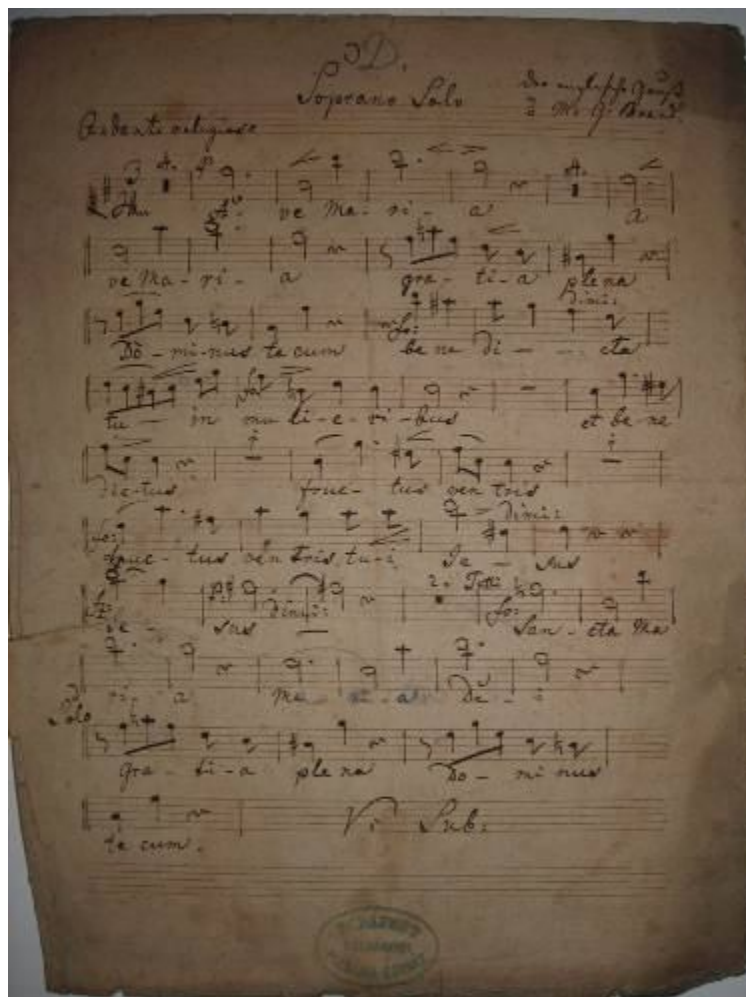 Soprano Solo
Andante religioso
A - ve Ma - ri - a A
ve Ma - ri - a gra - ti - a plena
dimi:
Do - mi - nus te cum be ne di - - - cta
tu - in mu li - e - ri - bus et be ne
dic - tus fruc - tus ven tris
dimi:
fruc - tus ven tris, tu - i, Je - sus
2. Tutti
dimi:
Je - sus San - cta Ma
ri - a Ma - ri - a De - i
Solo
gra - ti - a ple na Do - mi nus
te cum.
Vi Sub: